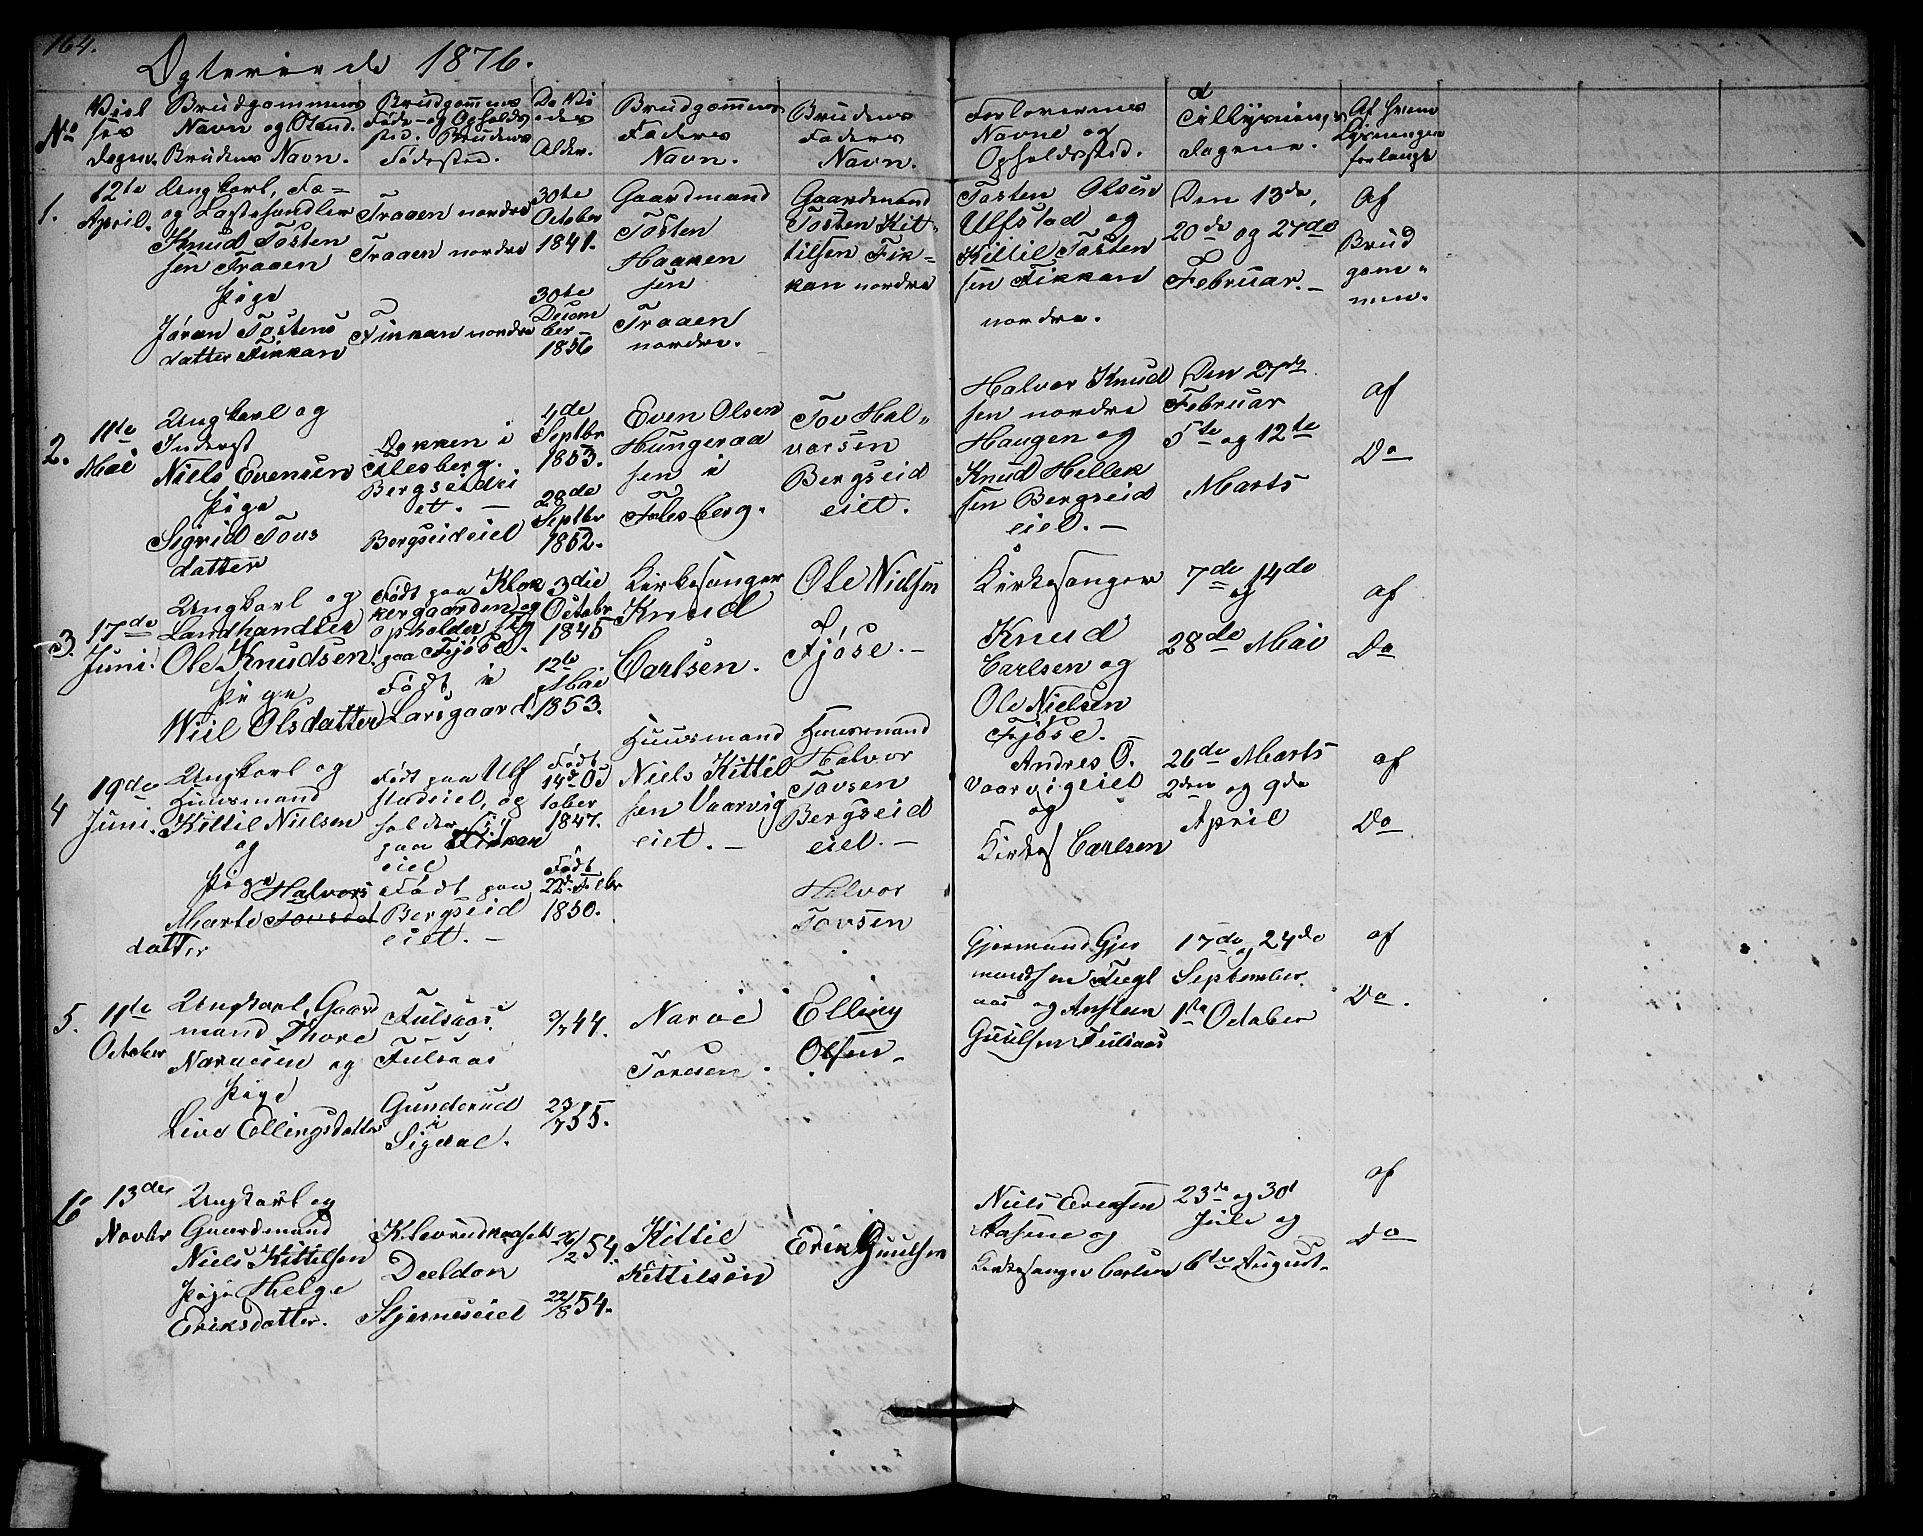 164.
Ægteviede 1876.
No
Viel
ses
dagen.
Brudgommens
Navn og Stand.
Brudens Navn.
Brudgommens
Føde- og Opholds
sted. Brudens
Fødested.
De Vi
edes
Alder.
Brudgommens
Faders
Navn.
Brudens
Faders
Navn.
Forlovernes
Navne og
Opholdssted.
Tillysnings
dagene.
Af hvem
Lysningen
forlangt
1.
12te
April.
Ungkarl, Fø-
og Lastehandler
Knud Tosten
sen Traaen
Pige
Jøran Tostens
datter Fikkan
Traaen nordre
Traaen nordre
Fikkan nordre
30te
October
1841.
30te
Decem
ber
1856
Gaardmand
Tosten
Haaken
sen
Traaen
nordre.
Gaardmand
Tosten Kit-
tilsen Fik-
kan nordre
Tosten Olsen
Ulfstad og
Kittil Tosten
sen Fikkan
nordre.
Den 13de,
20de og 27de
Februar. -
Af
Brud
gom-
men.
2.
11te
Mai
Ungkarl og
Inderst
Niels Evensen
Pige
Sigrid Tovs
datter
Bakken i
Flesberg.
Bergseidei
et. -
Bergseideiet
4de
Septbr
1853.
28de
Septbr
1852.
Even Olsen
Hungeraa
sen i
Flesberg.
Tov Hal-
vorsen
Bergseid
eiet.
Halvor Knud
sen nordre
Haugen og
Knud Hellek
sen Bergseid
eiet. -
Den 27de
Februar
5te og 12te
Marts
af
Do
3.
17de
Juni.
Ungkarl og
Landhandler
Ole Knudsen.
Pige
Wiel Olsdatter
Født paa Klok
kergaarden og
opholder sig
paa Fjøse.
Født i
Larsgaard.
3die
Octobr
1845
12te
Mai
1853.
Kirkesanger
Knud
Carlsen.
Ole Nielsen
Fjøse. -
Kirkesanger
Knud
Carlsen og
Ole Nielsen
Fjøse. -
7de og 14de
28de Mai
af
Do
4
19de
Juni.
Ungkarl og
Huusmand
Kittil Nielsen
og
Pige Halvors
Marte Tovsdat
datter
Født paa Ulf
stadeiet, og
holder til
paa Fikkan
eiet
Født paa
Bergseid
eiet. -
Født
14de Oc
tober
1847.
Født
22de Febr
1850.
Huusmand
Niels Kittil
sen Vaarvig
eiet. -
Huusmand
Halvor
Tovsen
Bergseid
eiet. -
Halvor
Tovsen
Andres O.
Vaarvigeiet
og
Kirkes Carlsen
26de Marts
2den og 9de
April
af
Do
5.
11te
October
Ungkarl, Gaard
mand Thore
Narvesen og
Pige
Live Ellingsdatter
Fulsaas.
Fulsaas
Gunderud
i
Sigdal.
9/7 44.
23/7 55.
Narve
Toresen.
Elling
Olsen.
Gjermund Gjer
mundsen Fugl
aas og Anstein
Guulsen Fulsaas
17de og 24de
September.
1ste October
af
Do.
6
13de
Novbr
Ungkarl og
Gaardmand
Niels Kittelsen
Pige Helge
Eriksdatter.
Deeldon
Stjerneseiet
26/2 54.
22/8 54.
Kittil
Kittilsen
Erik Guulsen
Niels Eriksen
Aasene og
Kirkesanger Carlsen
23de og 30t
Juli og
6te August.
af
Do